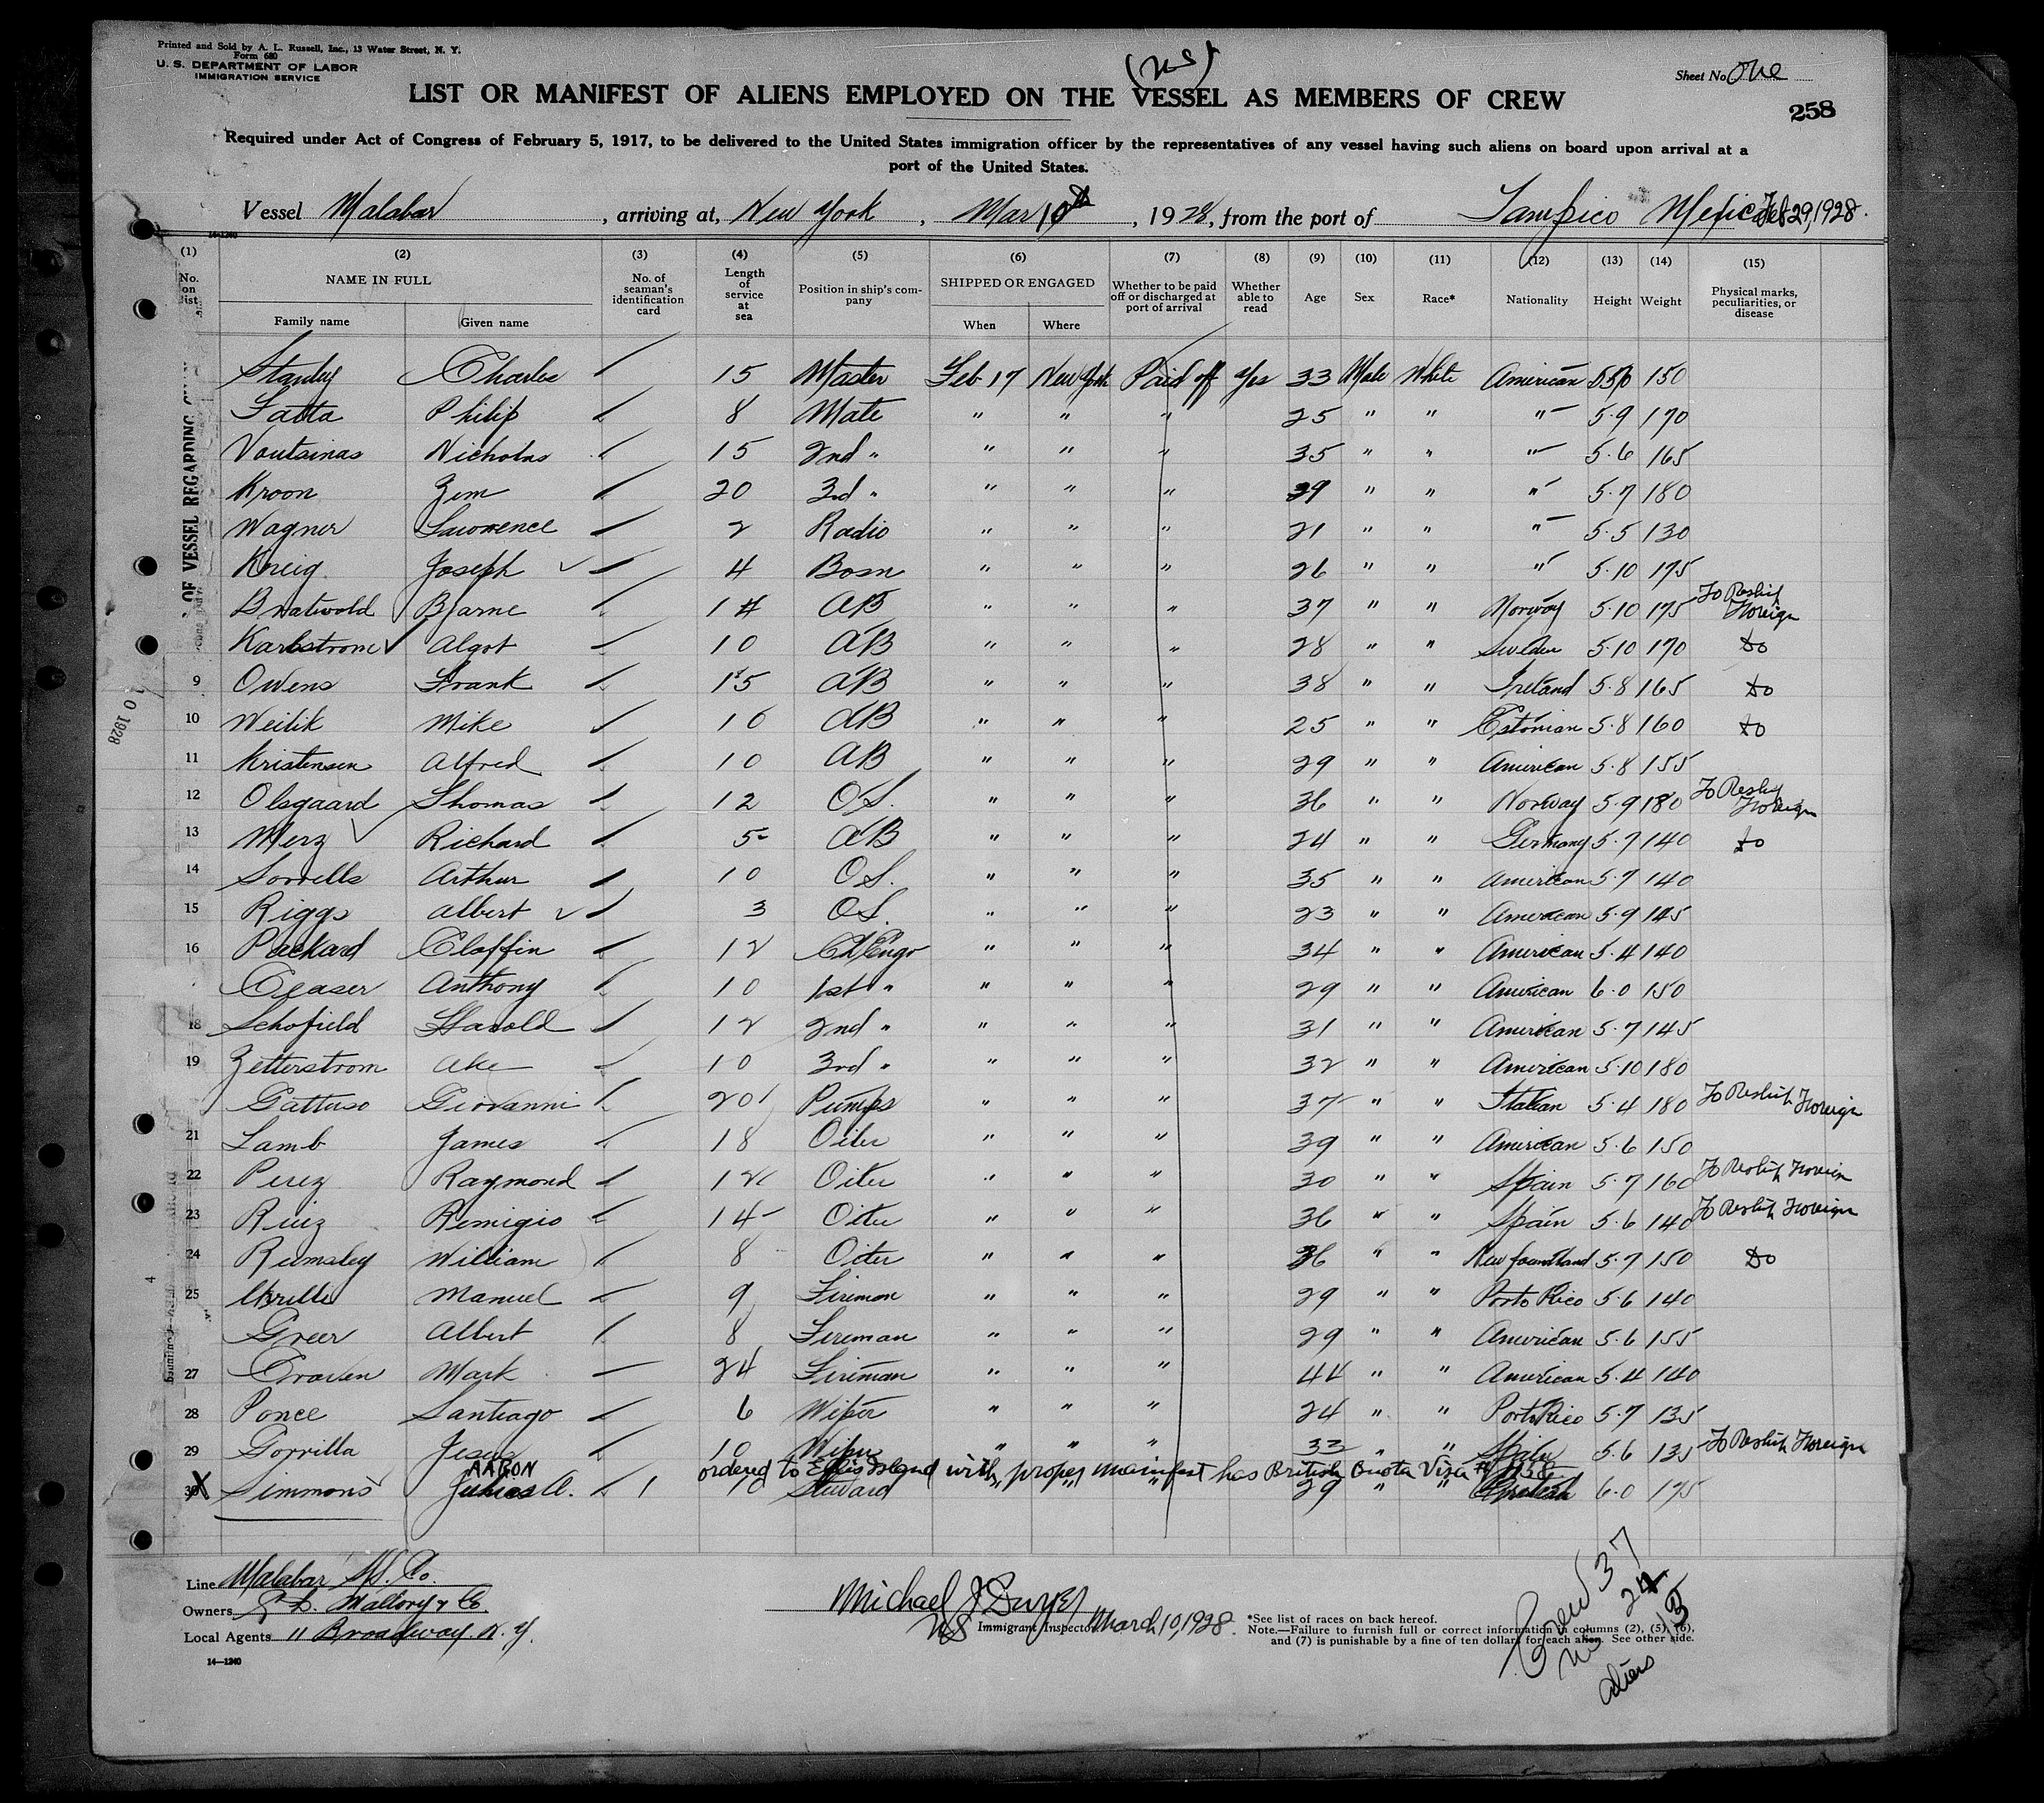 Printed and Sold by A. L. Russell, Inc., 13 Water Street, N. Y.
Form 680
U. S. DEPARTMENT OF LABOR
IMMIGRATION SERVICE
Sheet No. One
258
LIST OR MANIFEST OF ALIENS EMPLOYED ON THE VESSEL AS MEMBERS OF CREW
Required under Act of Congress of February 5, 1917, to be delivered to the United States immigration officer by the representatives of any vessel having such aliens on board upon arrival at a
port of the United States.
Vessel Malabar, arriving at, New York, Mar 10th, 1928, from the port of Tampico Mexico Feb 29, 1928.
14-1240
(1) (2) (3) (4) (5) (6) (7) (8) (9) (10) (11) (12) (13) (14) (15)
No. on list NAME IN FULL Family name Given name No. of seaman's identification card Length of service at sea Position in ship's company SHIPPED OR ENGAGED When Where Whether to be paid off or discharged at port of arrival Whether able to read Age Sex Race* Nationality Height Weight Physical marks, peculiarities, or disease
Stanley Charles 15 Master Feb 17 New York Paid off Yes 33 Male White American 150
Fatta Philip 8 Mate " " " 25 " " " 5.9 170
Voutsinas Nicholas 15 2nd " " " " 35 " " " 5.6 165
Kroon Zem 20 3rd " " " " 39 " " " 5.7 180
Wagner Lawrence 2 Radio " " " 21 " " " 5.5 130
Kneig Joseph 4 Bosn " " " 26 " " " 5.10 175
Bratwold Bjarne AB " " " 37 " " Norway 5.10 175 To Reship Foreign
Karlstrom Algot 10 AB " " " 28 " " Sweden 5.10 170 do
9 Owens Frank 15 AB " " " 38 " " Ireland 5.8 165 do
10 Weilik Mike 10 AB " " " 25 " " Estonian 5.8 160 do
11 Kristensen Alfred 10 AB " " " 29 " " American 5.8 155
12 Olsgaard Thomas 12 O.S. " " " 36 " " Norway 5.9 180 To Reship Foreign
13 Merz Richard 5 AB " " " 24 " " Germany 5.7 140 do
14 Sorrells Arthur 10 O.S. " " " 35 " " American 5.7 140
15 Riggs Albert 3 O.S. " " " 23 " " American 5.9 145
16 Packard Claffin 12 Ch Engr " " " 34 " " American 5.4 140
Ceaser Anthony 10 1st " " " " 29 " " American 6.0 150
18 Schofield Harold 12 2nd " " " " 31 " " American 5.7 145
19 Zetterstrom Ake 10 3rd " " " " 32 " " American 5.10 180
Gattuso Giovanni 20 Pumps " " " 37 " " Italian 5.4 180 To Reship Foreign
21 Lamb James 18 Oiler " " " 39 " " American 5.6 150
22 Perez Raymond 12 Oiler " " " 30 " " Spain 5.7 160 To Reship Foreign
23 Ruiz Remigio 14 Oiler " " " 36 " " Spain 5.6 140 To Reship Foreign
24 Rumsley William 8 Oiler " " " 36 " " Newfoundland 5.7 150 Do
25 Manuel 9 Fireman " " " 29 " " Porto Rico 5.6 140
Greer Albert 8 Fireman " " " 29 " " American 5.6 155
27 Craven Mark 24 Fireman " " " 44 " " American 5.4 140
28 Ponce Santiago 6 Wiper " " " 24 " " Porto Rico 5.7 135
29 Gorrilla Jesus 10 Wiper " " " 33 " " Spain 5.6 135 To Reship Foreign
AARON ordered to Ellis Island with proper manifest has British Quota Visa
30 Simmons A. 1 Steward " " " 29 " " 6.0 175
Line Malabar SS. Co.
Owners C. D. Mallory & Co.
Local Agents 11 Broadway. N. Y.
14—1240
Michael J. Dwyer
Immigrant Inspector March 10, 1928.
*See list of races on back hereof.
Note.—Failure to furnish full or correct information in columns (2), (5), (6),
and (7) is punishable by a fine of ten dollars for each alien. See other side.
Crew 37
24
Aliens 13